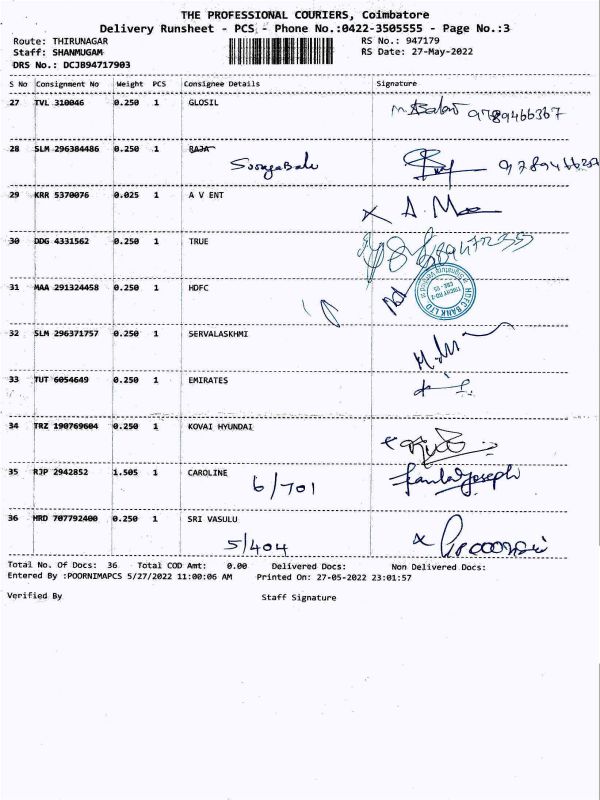 THE PROFESSIONAL COURIERS, Coimbatore
Delivery Runsheet - PCS - Phone No.:0422-3505555 - Page No.:3
Route: THIRUNAGAR RS No.: 947179
Staff: SHANMUGAM RS Date: 27-May-2022
DRS No.: DCJB94717903
S No Consignment No Weight PCS Consignee Details Signature
27 TVL 310046 0.250 1 GLOSIL
9789466367
28 SLM 296384486 0.250 1 RAJA
29 KRR 5370076 0.025 1 A V ENT
x A. M
30 DDG 4331562 0.250 1 TRUE
31 MAA 291324458 0.250 1 HDFC
HDFC BANK LTD
32 SLM 296371757 0.250 1 SERVALASKHMI
33 TUT 6054649 0.250 1 EMIRATES
34 TRZ 190769604 0.250 1 KOVAI HYUNDAI
35 RJP 2942852 1.505 1 CAROLINE
6/701
36 HRD 707792400 0.250 1 SRI VASULU
5/404 x
Total No. Of Docs: 36 Total COD Amt: 0.00 Delivered Docs: Non Delivered Docs:
Entered By :POORNIMAPCS 5/27/2022 11:00:06 AM Printed On: 27-05-2022 23:01:57
Verified By Staff Signature